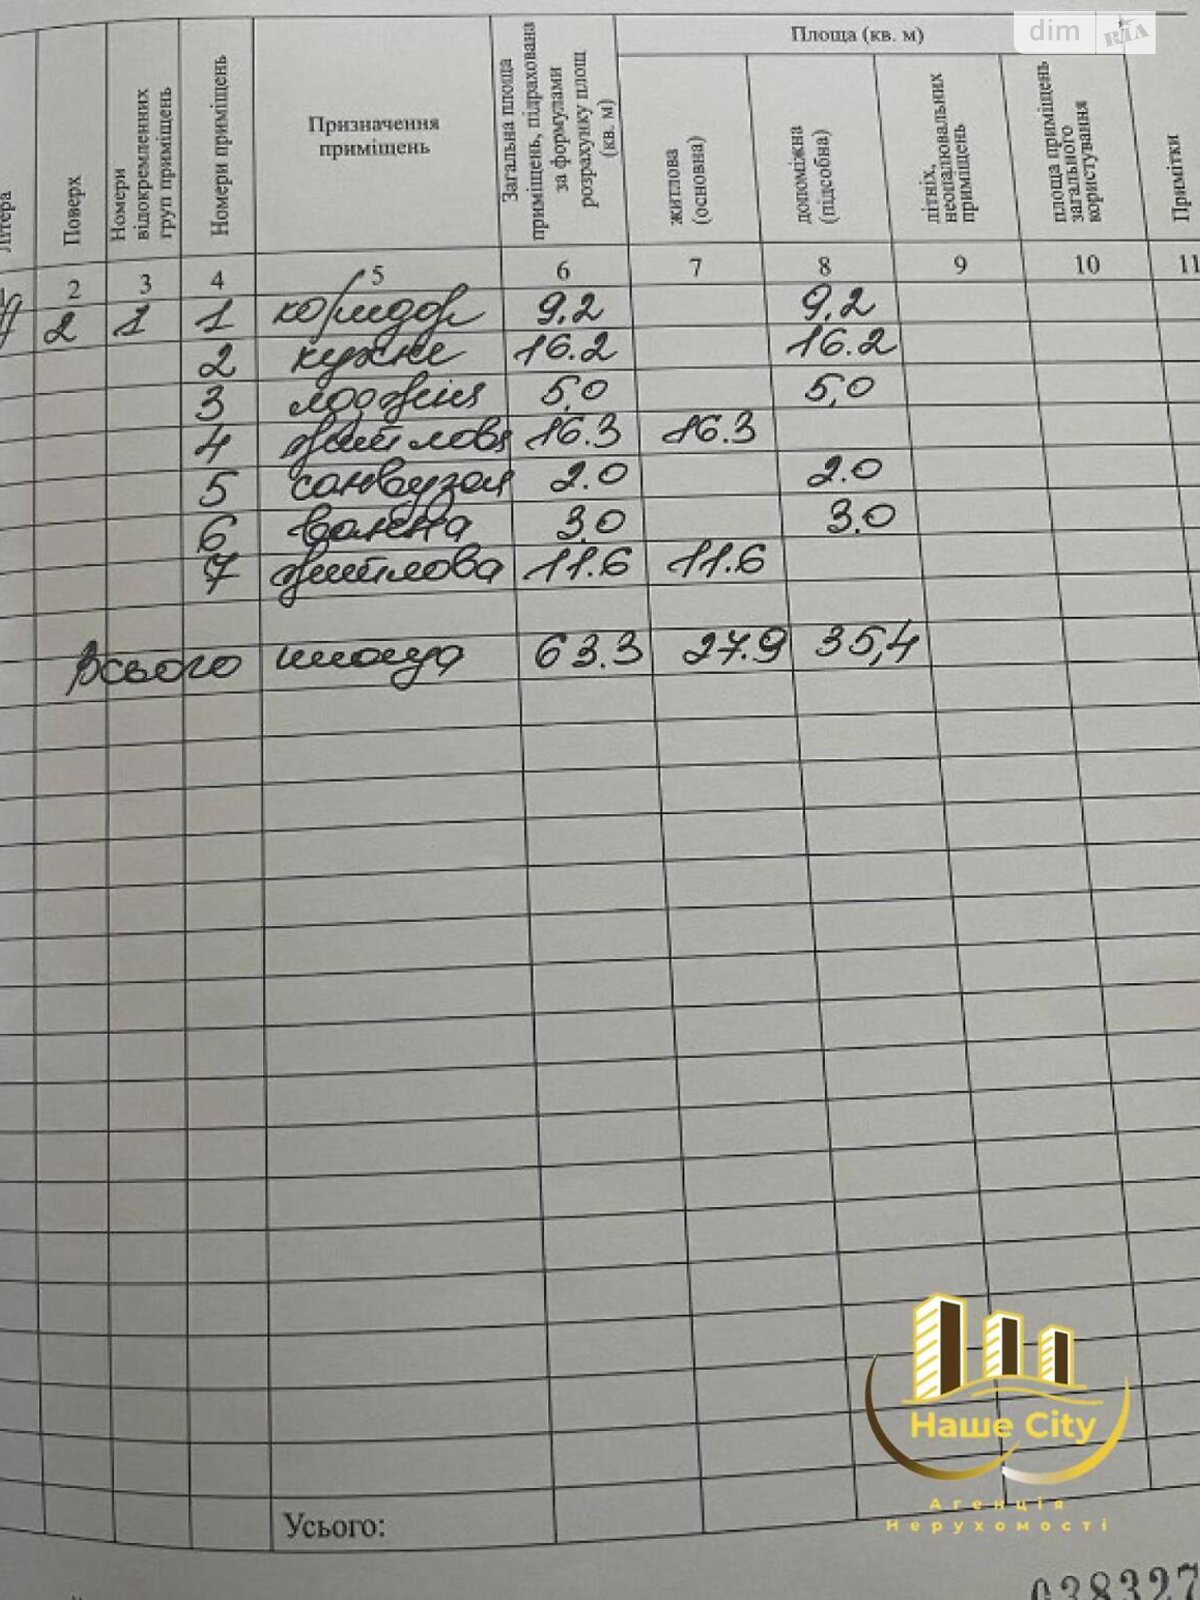 dim RIA
Літера
Поверх
Номери відокремленних груп приміщень
Номери приміщень
Призначення приміщень
Загальна площа приміщень, підрахована за формулами розрахунку площ (кв. м)
Площа (кв. м)
житлова (основна)
допоміжна (підсобна)
літніх, неопалювальних приміщень
площа приміщень загального користування
Примітки
2 3 4 5 6 7 8 9 10 11
2 1 1 коридор 9,2 9,2
2 кухне 16.2 16.2
3 лоджія 5,0 5,0
4 житлова 16.3 16.3
5 санвузол 2.0 2.0
6 ванна 3,0 3.0
7 житлова 11.6 11.6
Всього площа 63.3 27.9 35,4
Наше City
Агенція
Нерухомості
Усього:
038327